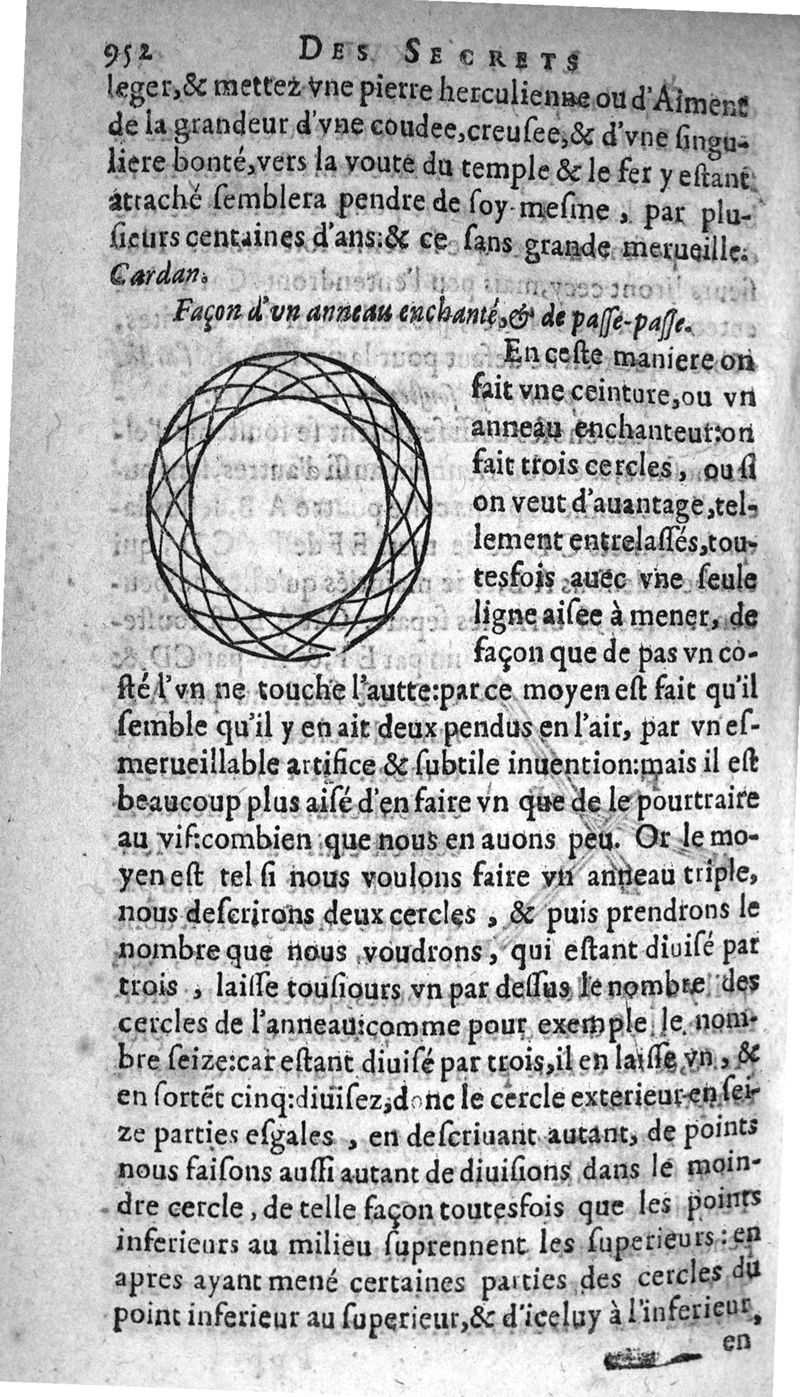 952 DES SECRETS
leger,& mettez vne pierre herculienne ou d'Aiment
de la grandeur d'vne coudee,creuſee,& d'vne ſingu-
liere bonté,vers la voute du temple & le fer y eſtant
attaché ſemblera pendre de ſoy-meſme, par plu-
ſieurs centaines d'ans:& ce ſans grande merueille.
Cardan.
Façon d'vn anneau enchanté,& de paſſe-paſſe.
En ceſte maniere on
fait vne ceinture,ou vn
anneau enchanteur:on
fait trois cercles, ou ſi
on veut d'auantage,tel-
lement entrelaſſés,tou-
tesfois auec vne ſeule
ligne aiſee à mener, de
façon que de pas vn co-
ſté l'vn ne touche l'autte:par ce moyen eſt fait qu'il
ſemble qu'il y en ait deux pendus en l'air, par vn eſ-
merueillable artifice & ſubtile inuention:mais il eſt
beaucoup plus aiſé d'en faire vn que de le pourtraire
au vif:combien que nous en auons peu. Or le mo-
yen eſt tel ſi nous voulons faire vn anneau triple,
nous deſcrirons deux cercles, & puis prendrons le
nombre que nous voudrons, qui eſtant diuiſé par
trois, laiſſe touſiours vn par deſſus le nombre des
cercles de l'anneau:comme pour exemple le nom-
bre ſeize:car eſtant diuiſé par trois,il en laiſſe vn, &
en ſortẽt cinq:diuiſez,donc le cercle exterieur en ſei-
ze parties eſgales, en deſcriuant autant, de points
nous faiſons auſſi autant de diuiſions dans le moin-
dre cercle, de telle façon toutesfois que les points
inferieurs au milieu ſuprennent les ſuperieurs: en
apres ayant mené certaines parties des cercles du
point inferieur au ſuperieur,& d'iceluy à l'inferieur,
en